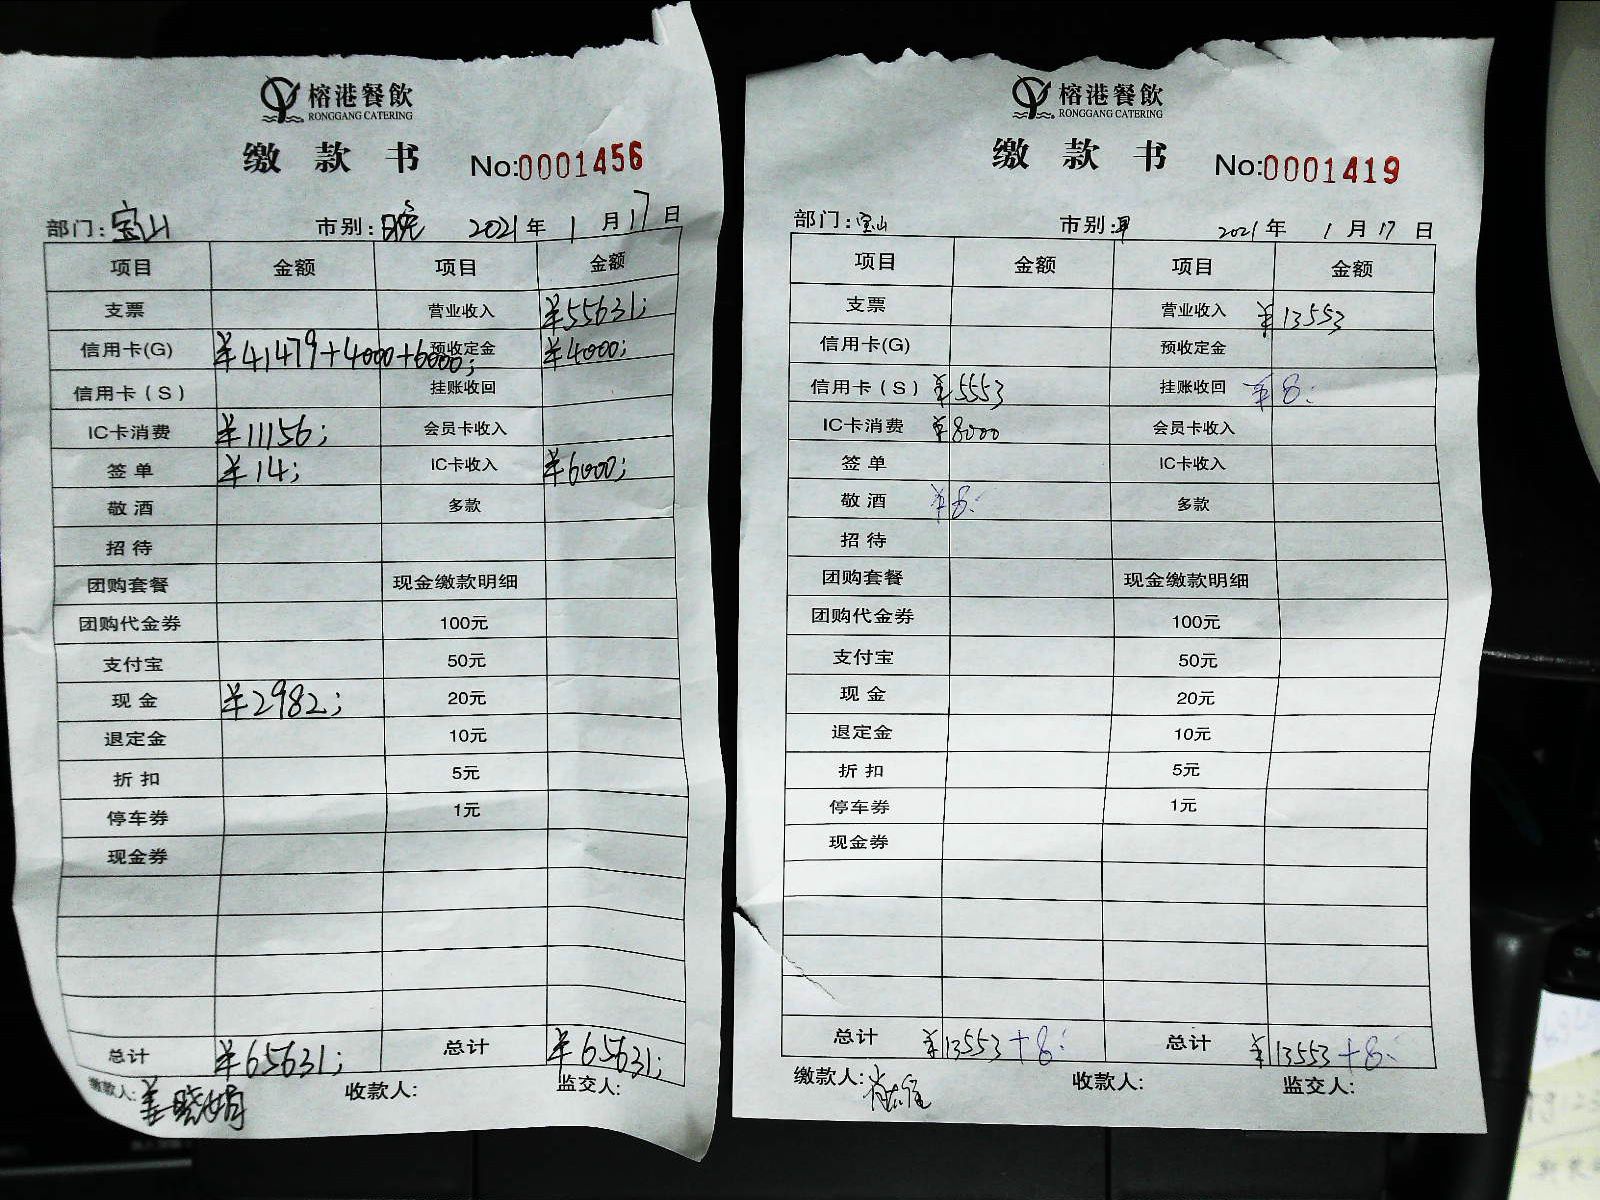 榕港餐飲
RONGGANG CATERING
缴 款 书 No:0001456
部门:宝山 市别:晚 2021年 1 月 17 日
项目 金额 项目 金额
支票 营业收入 ¥55631;
信用卡(G) ¥41479+4000+6000; 预收定金 ¥4000;
信用卡(S) 挂账收回
IC卡消费 ¥11156; 会员卡收入
签单 ¥14; IC卡收入 ¥6000;
敬酒 多款
招待
团购套餐 现金缴款明细
团购代金券 100元
支付宝 50元
现金 ¥2982; 20元
退定金 10元
折扣 5元
停车券 1元
现金券
总计 ¥65631; 总计 ¥65631;
缴款人:姜晓娟 收款人: 监交人:
榕港餐飲
RONGGANG CATERING
缴 款 书 No:0001419
部门:宝山 市别:早 2021年 1 月 17 日
项目 金额 项目 金额
支票 营业收入 ¥13553
信用卡(G) 预收定金
信用卡(S) ¥5553 挂账收回 ¥8:
IC卡消费 ¥8000 会员卡收入
签单 IC卡收入
敬酒 ¥8: 多款
招待
团购套餐 现金缴款明细
团购代金券 100元
支付宝 50元
现金 20元
退定金 10元
折扣 5元
停车券 1元
现金券
总计 ¥13553+8: 总计 ¥13553+8:
缴款人: 收款人: 监交人: